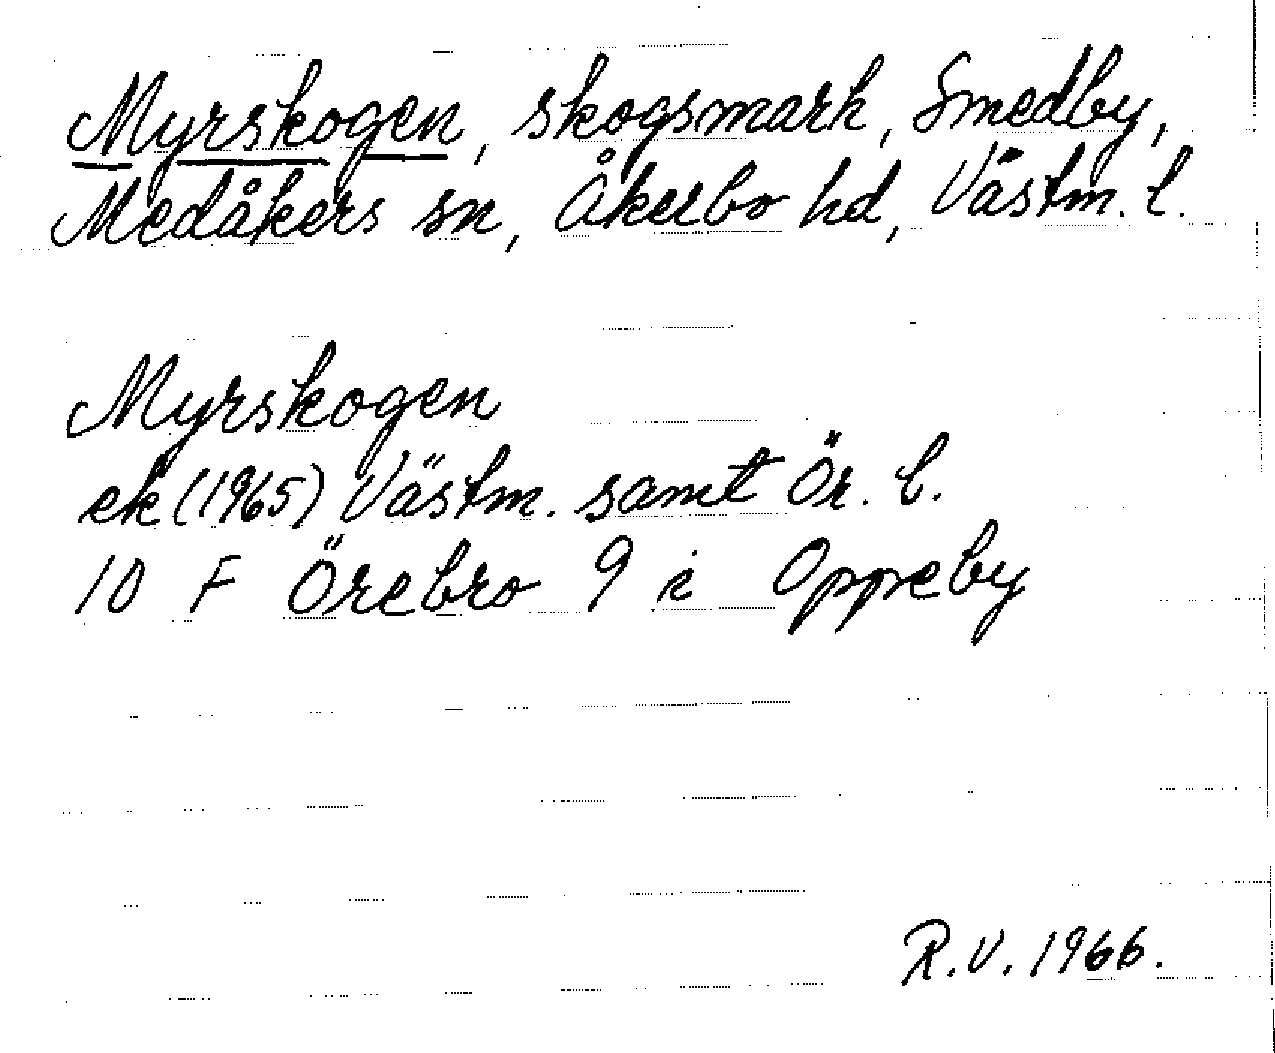 Myrskogen, skogsmark, Smedby,
Medåkers sn, Åkerbo hd, Västm. l.
Myrskogen
ek (1965) Västm. samt Ör. l.
10 F Örebro 9 i Oppeby
R.V. 1966.